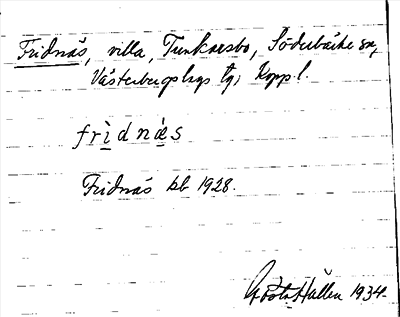 Fridnäs, villa, Tunkarsbo, Söderbärke sn,
Västerbergslags tg, Kopp.l.
fridnæs
Fridnäs kb 1928.
Gösta Hallen 1934.